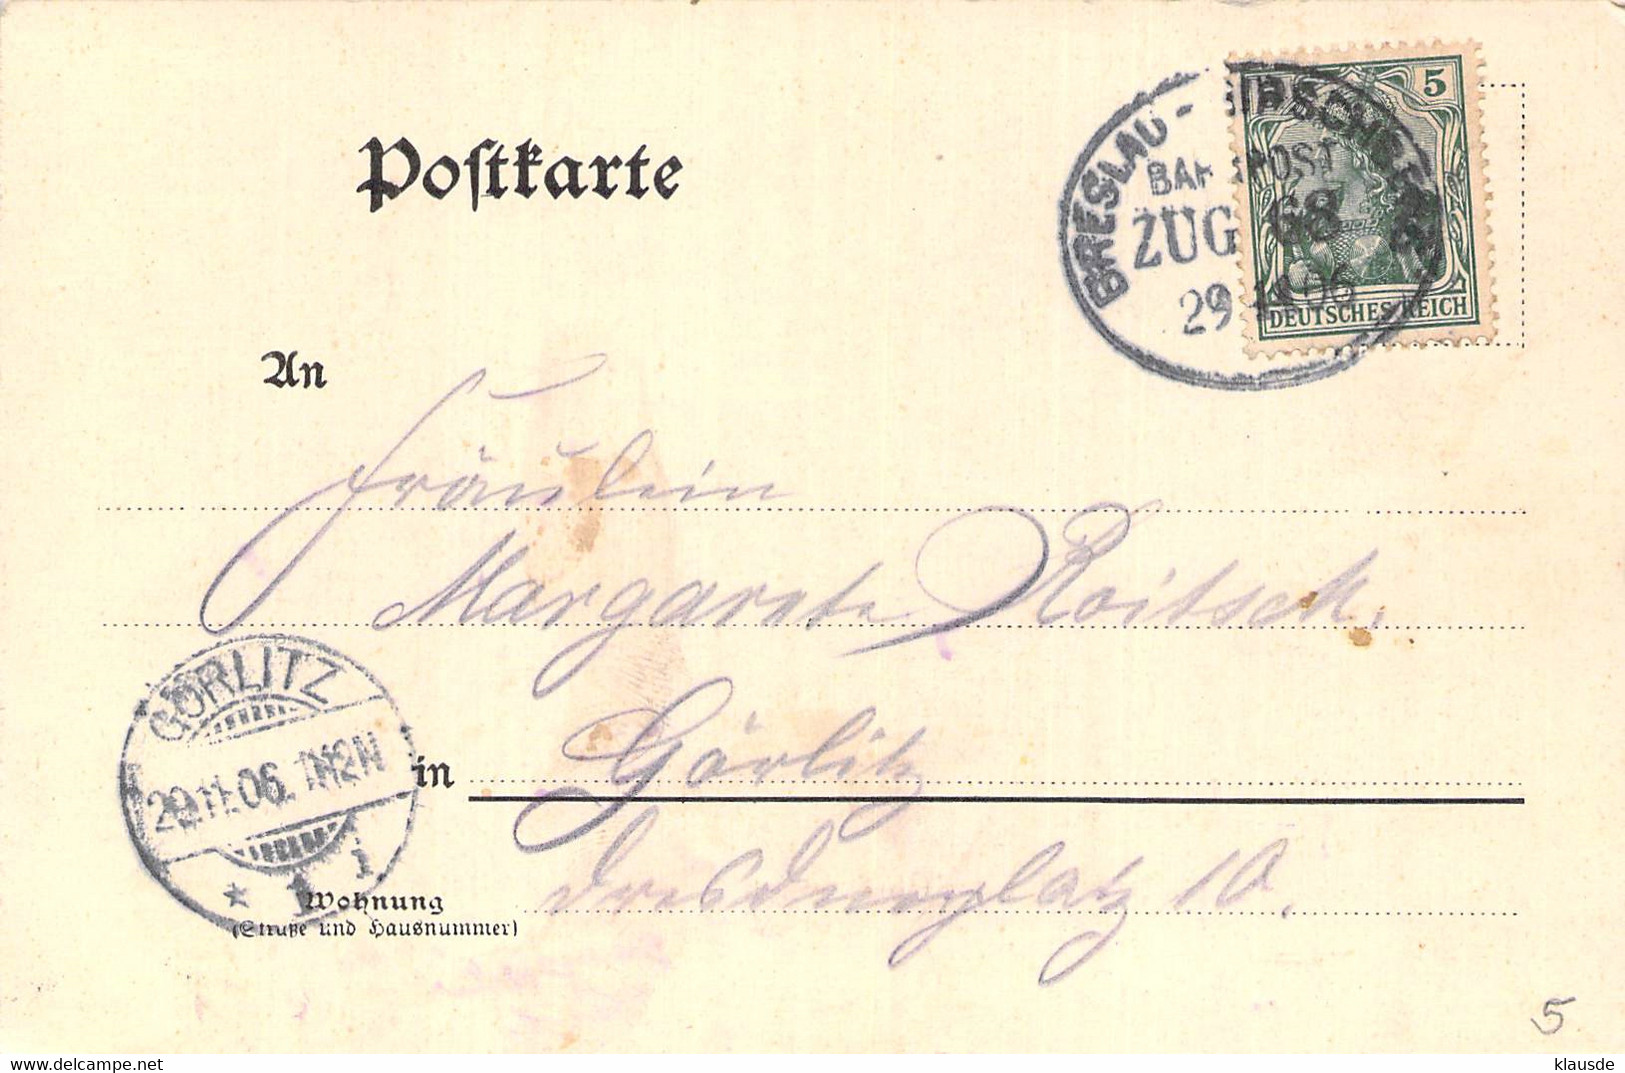 Postkarte
BRESLAU - HIRSCHBERG
BAHNPOST
ZUG 68
29 11 06
5
DEUTSCHES REICH
An
Fräulein
Margarete Roitsch,
GÖRLITZ
29.11.06.
* 1 i
in Görlitz
Wohnung
(Straße und Hausnummer)
Dresdnerplatz 10.
5
klausde